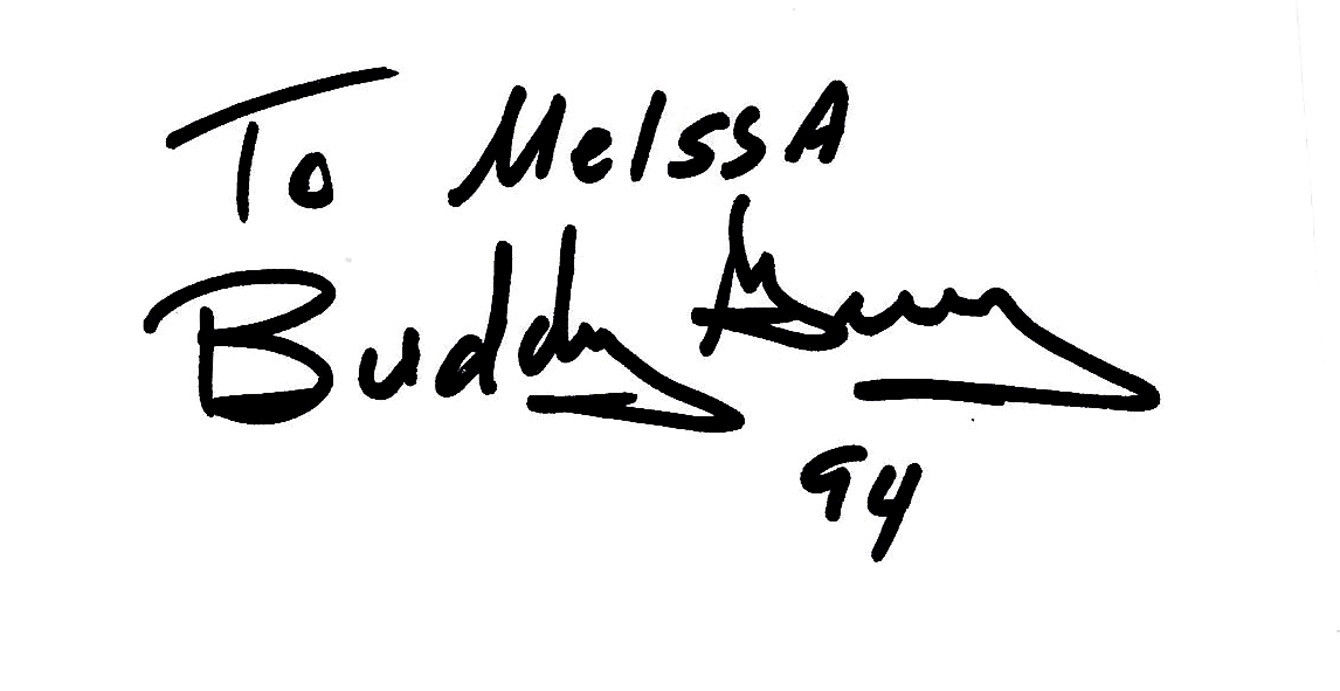 To MelssA
Buddy Guy
94